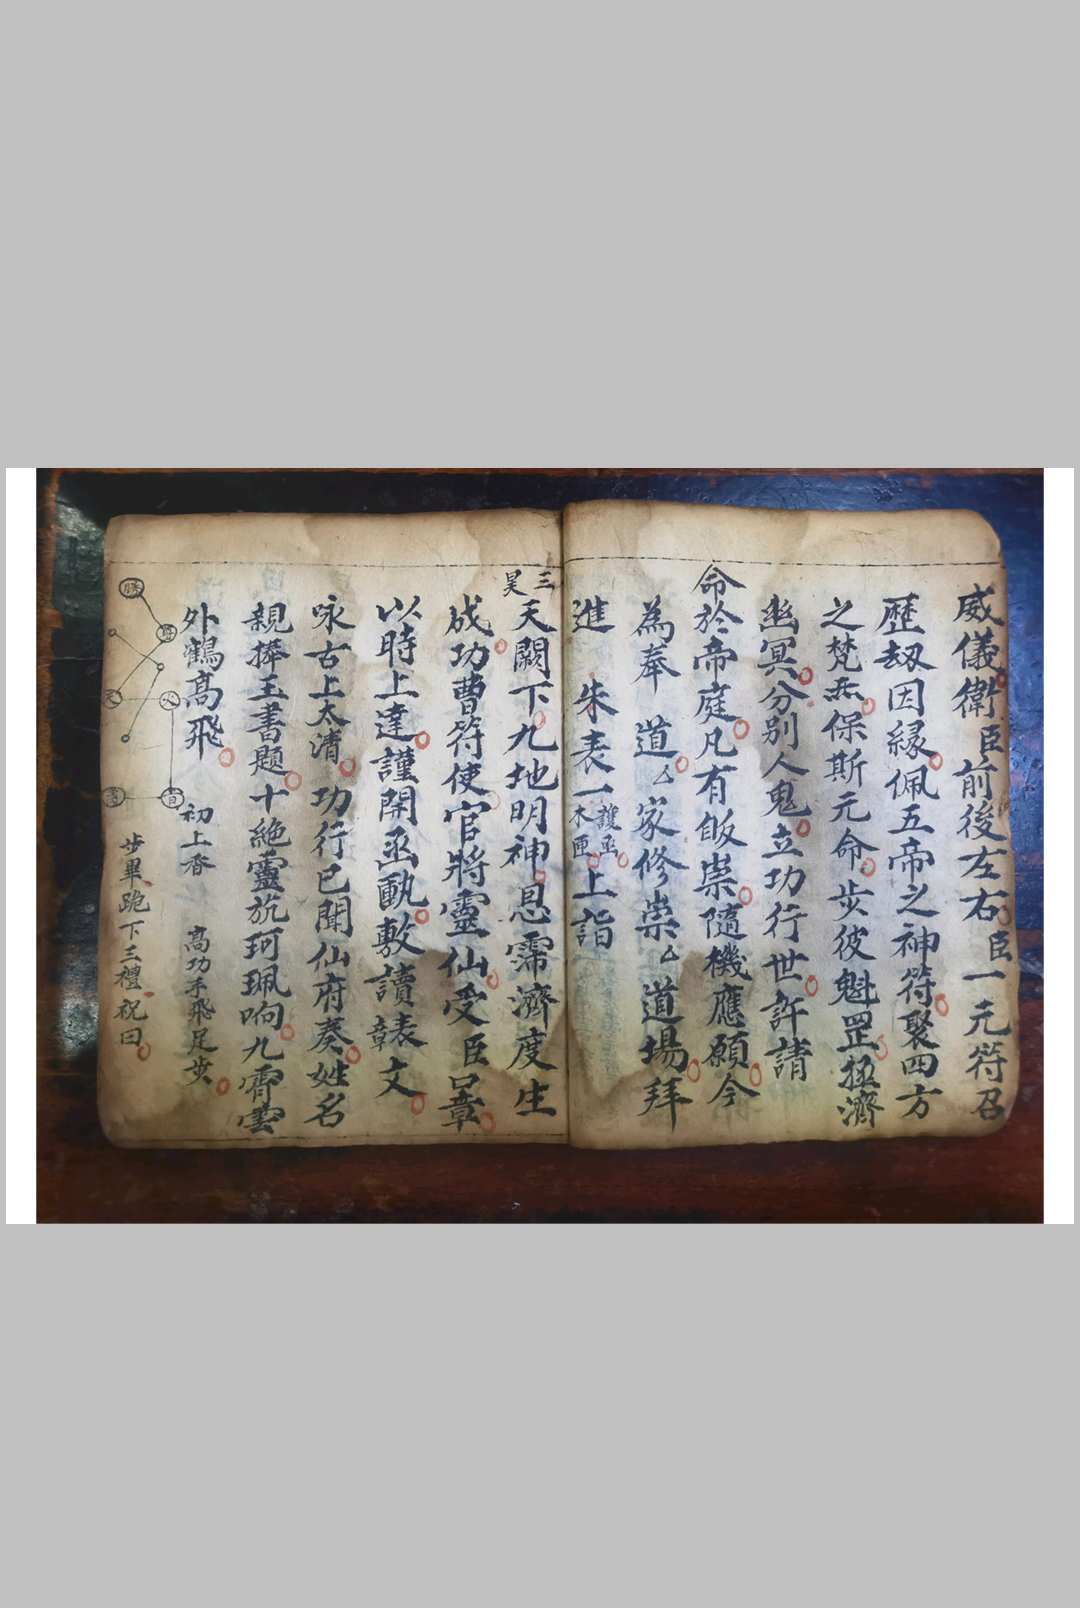 威儀衛臣前後左右臣一元符召
歷劫因緣佩五帝之神符聚四方
之梵炁保斯元命步彼魁罡拯濟
幽冥分別人鬼立功行世許請
命於帝庭凡有皈崇隨機應願今
為奉 道厶家修崇厶道場拜
進 朱表一護函木匣上詣
三天闕下九地明神恩霈濟度生
昊
成功曹符使官將靈仙受臣呈章
以時上達謹開函號敷讀表章文
咏古上太清功行已聞仙府奏姓名
親捧玉書題十絕靈旂珂珮响九霄雲
外鶴高飛 初上香 高功手飛足步
步畢跪下三禮祝曰